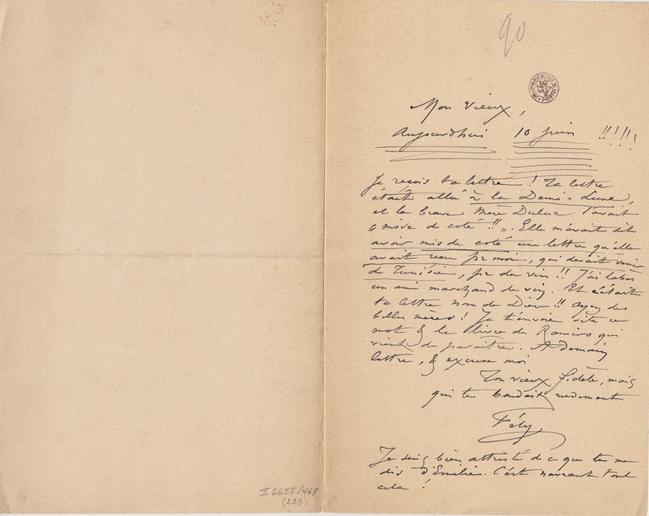 90
Mon vieux,
Aujourdhui 10 juin !!!!!
Je reçois ta lettre ! Ta lettre
était allée à la Demi-Lune,
et la brave Mère Duluc l'avait
"mise de coté !!". Elle m'avait dit
avoir mis de coté une lettre qu'elle
avait reçu pr moi, qui devait venir
de Tunisie, pr du vin !! J'ai là bas
un ami marchand de vin. Et c'était
ta lettre nom de Dieu !! ayez des
belles mères ! Je t'envoie vite ce
mot & le livre de Ramiro qui
vient de paraitre. A demain
lettre, & excuse moi
Ton vieux fidèle, mais
qui te boudait rudement
Fély
Je suis bien attristé de ce que tu me
dis d'Emélie. C'est navrant tout
cela !
II 6655/468
(223)